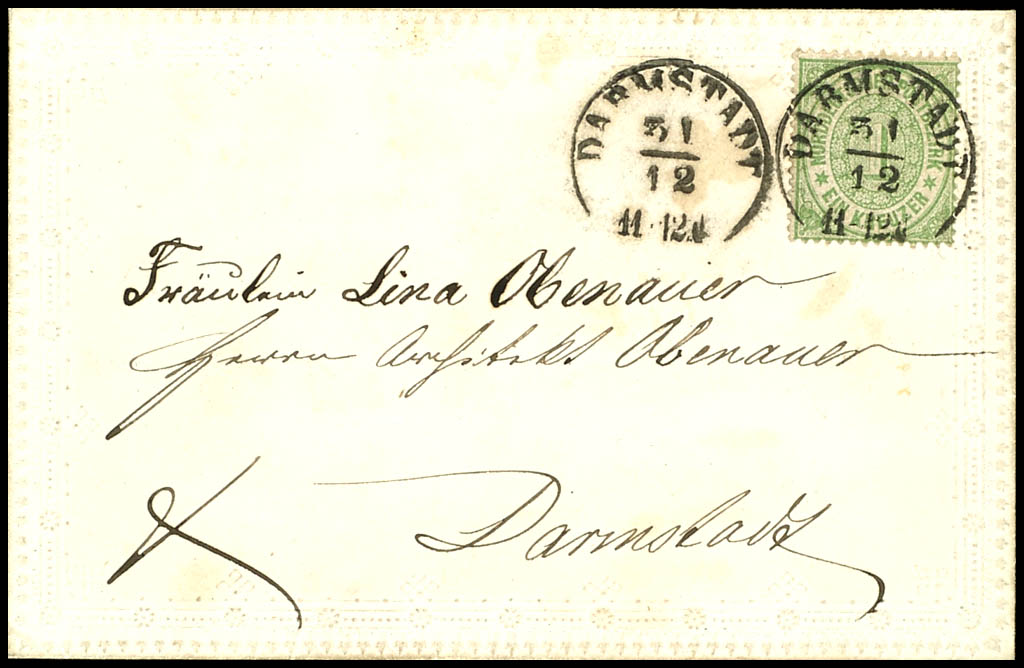 DARMSTADT
31
12
11-12
DARMSTADT
31
12
11-12
EIN KREUZER
Fräulein Lina Obenauer
Herrn Architekt Obenauer
Darmstadt